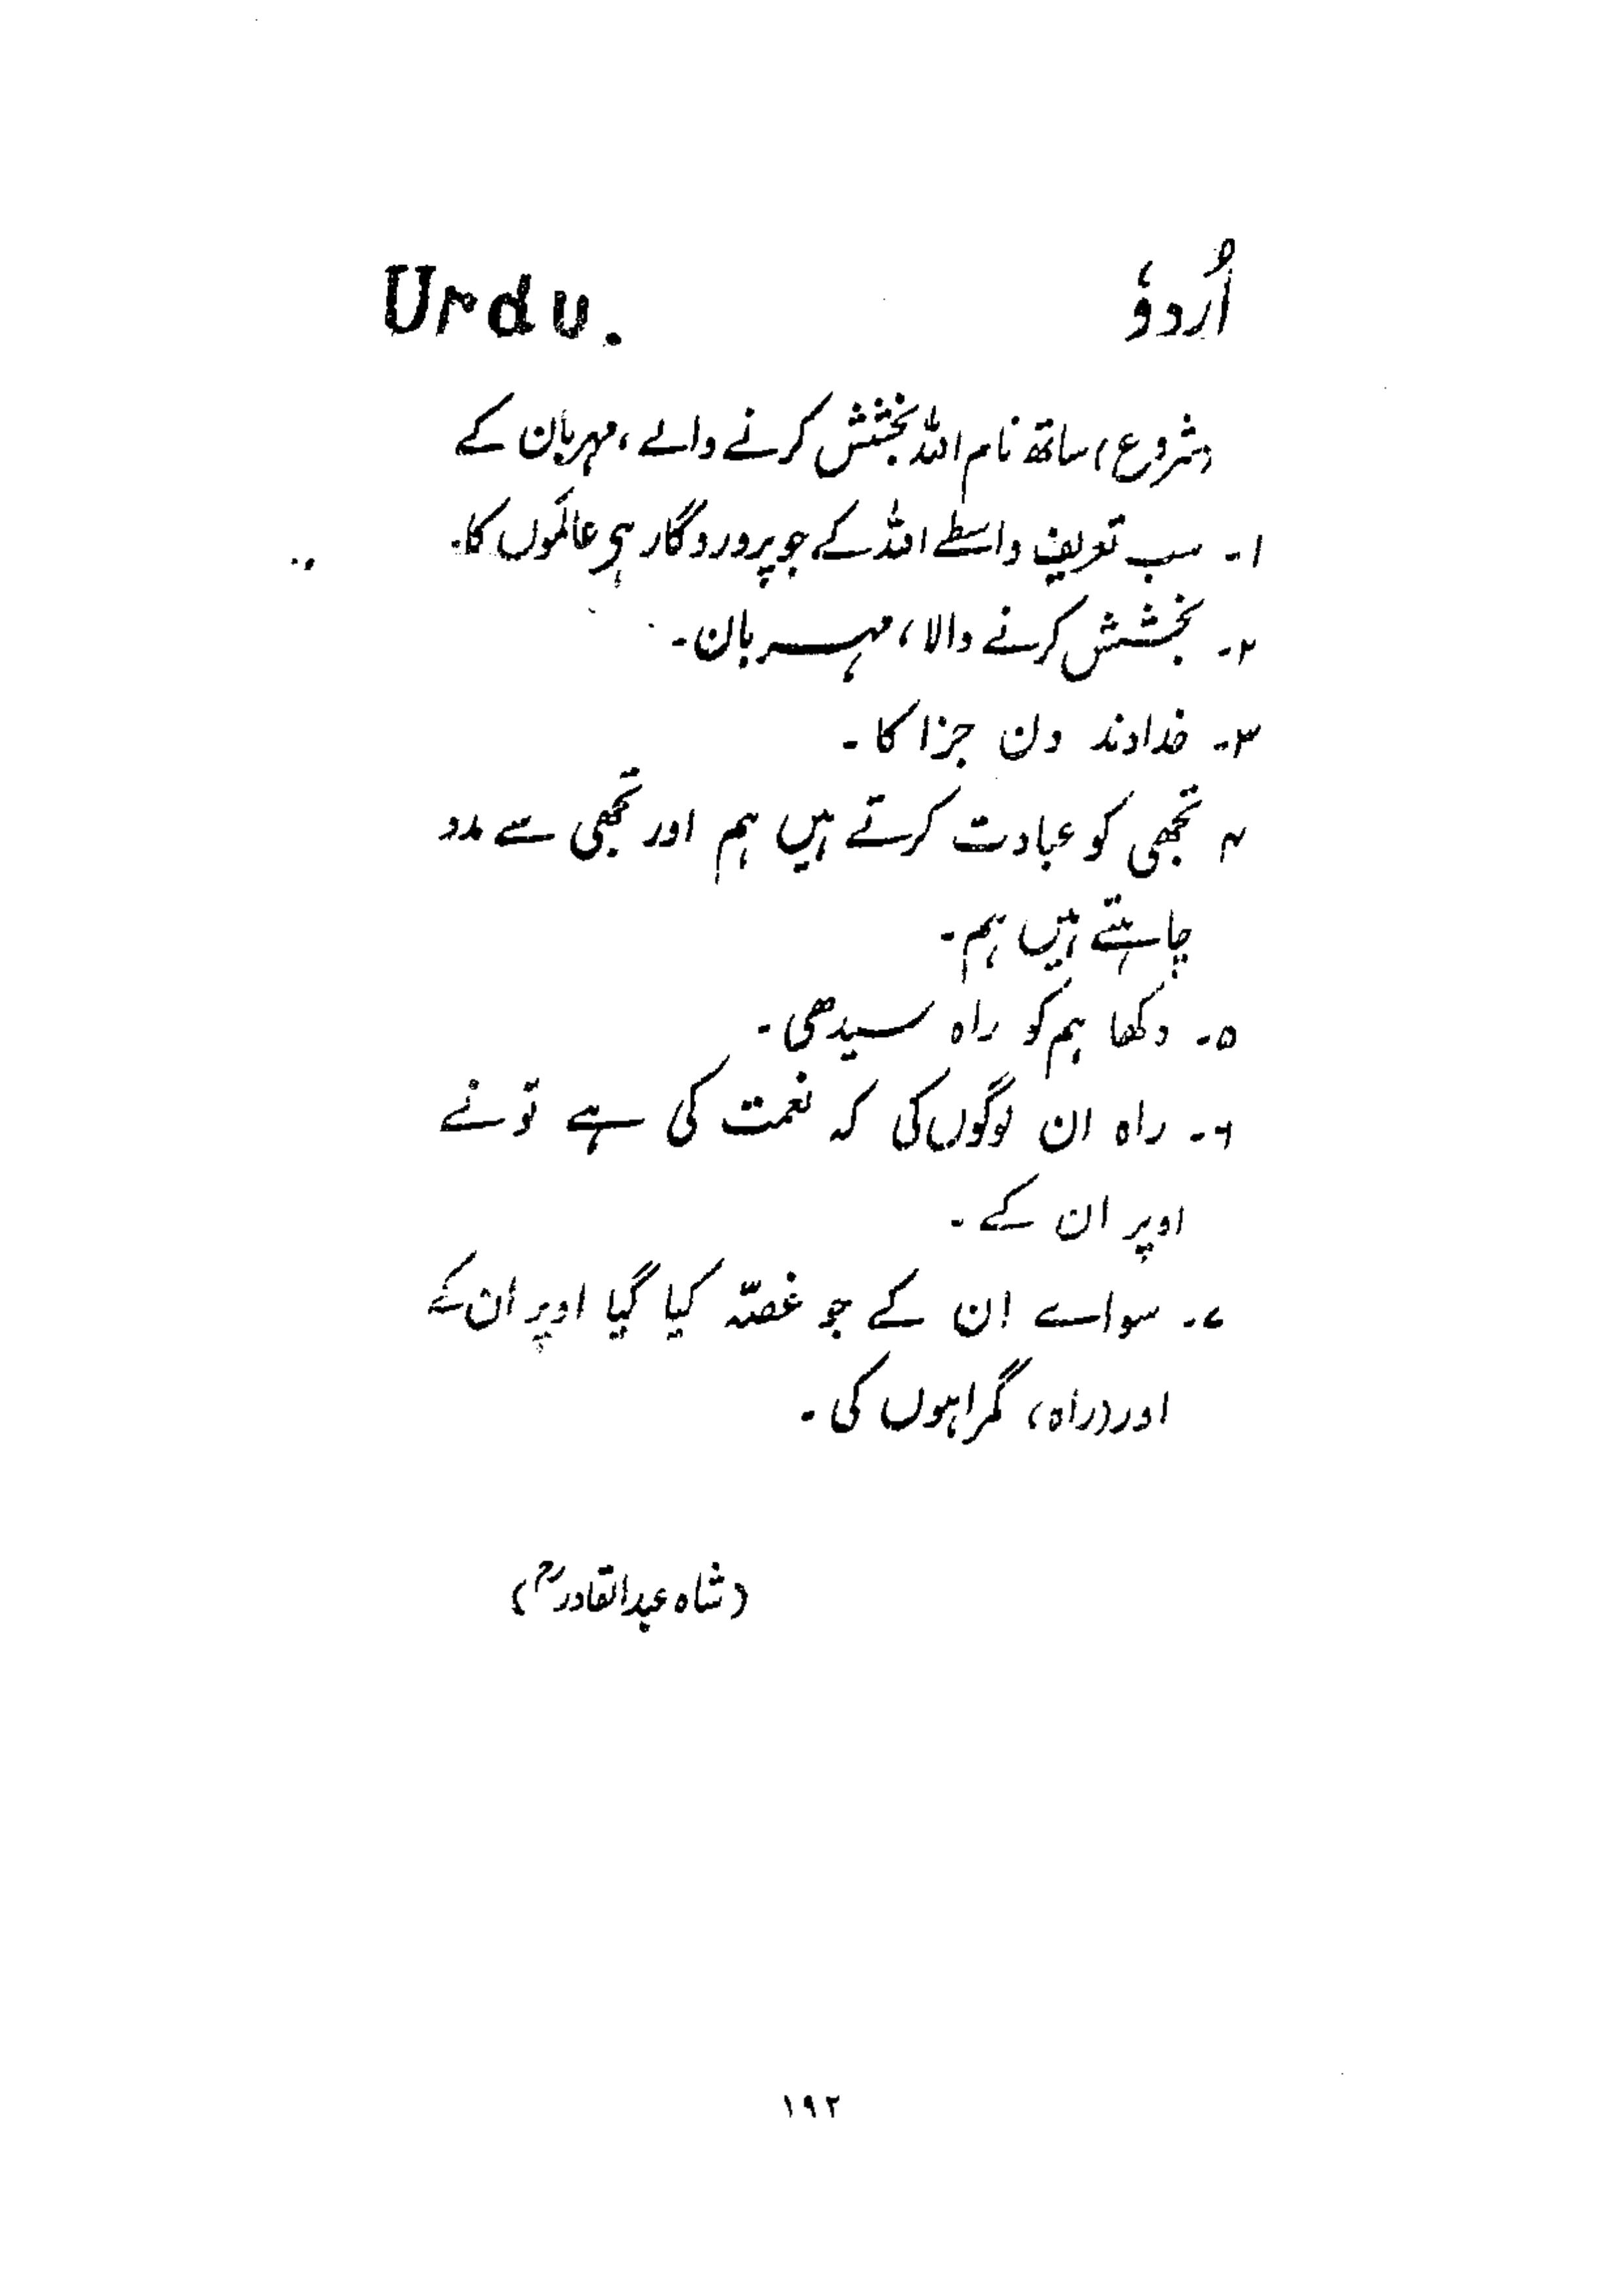 Urdu. اُردوٗ
(شروع) ساتھ نام اللہ بخشش کرنے والے، مہربان کے
۱۔ سب تعریف واسطے اللہ کے جو پروردگار ہی عالموں کا۔
۲۔ بخشش کرنے والا، مہربان۔
۳۔ خداوند دن جزا کا۔
۴ تجھی کو عبادت کرتے ہیں ہم اور تجھی سے مدد
چاہتے ہیں ہم۔
۵۔ دکھا ہم کو راہ سیدھی۔
۶۔ راہ ان لوگوں کی کہ نعمت کی ہے تو نے
اوپر ان کے۔
۷۔ سواے ان کے جو غصّہ کیا گیا اوپر ان کے
اور (راہ) گمراہوں کی۔
(شاہ عبدالقادرؒ)
۱۹۲